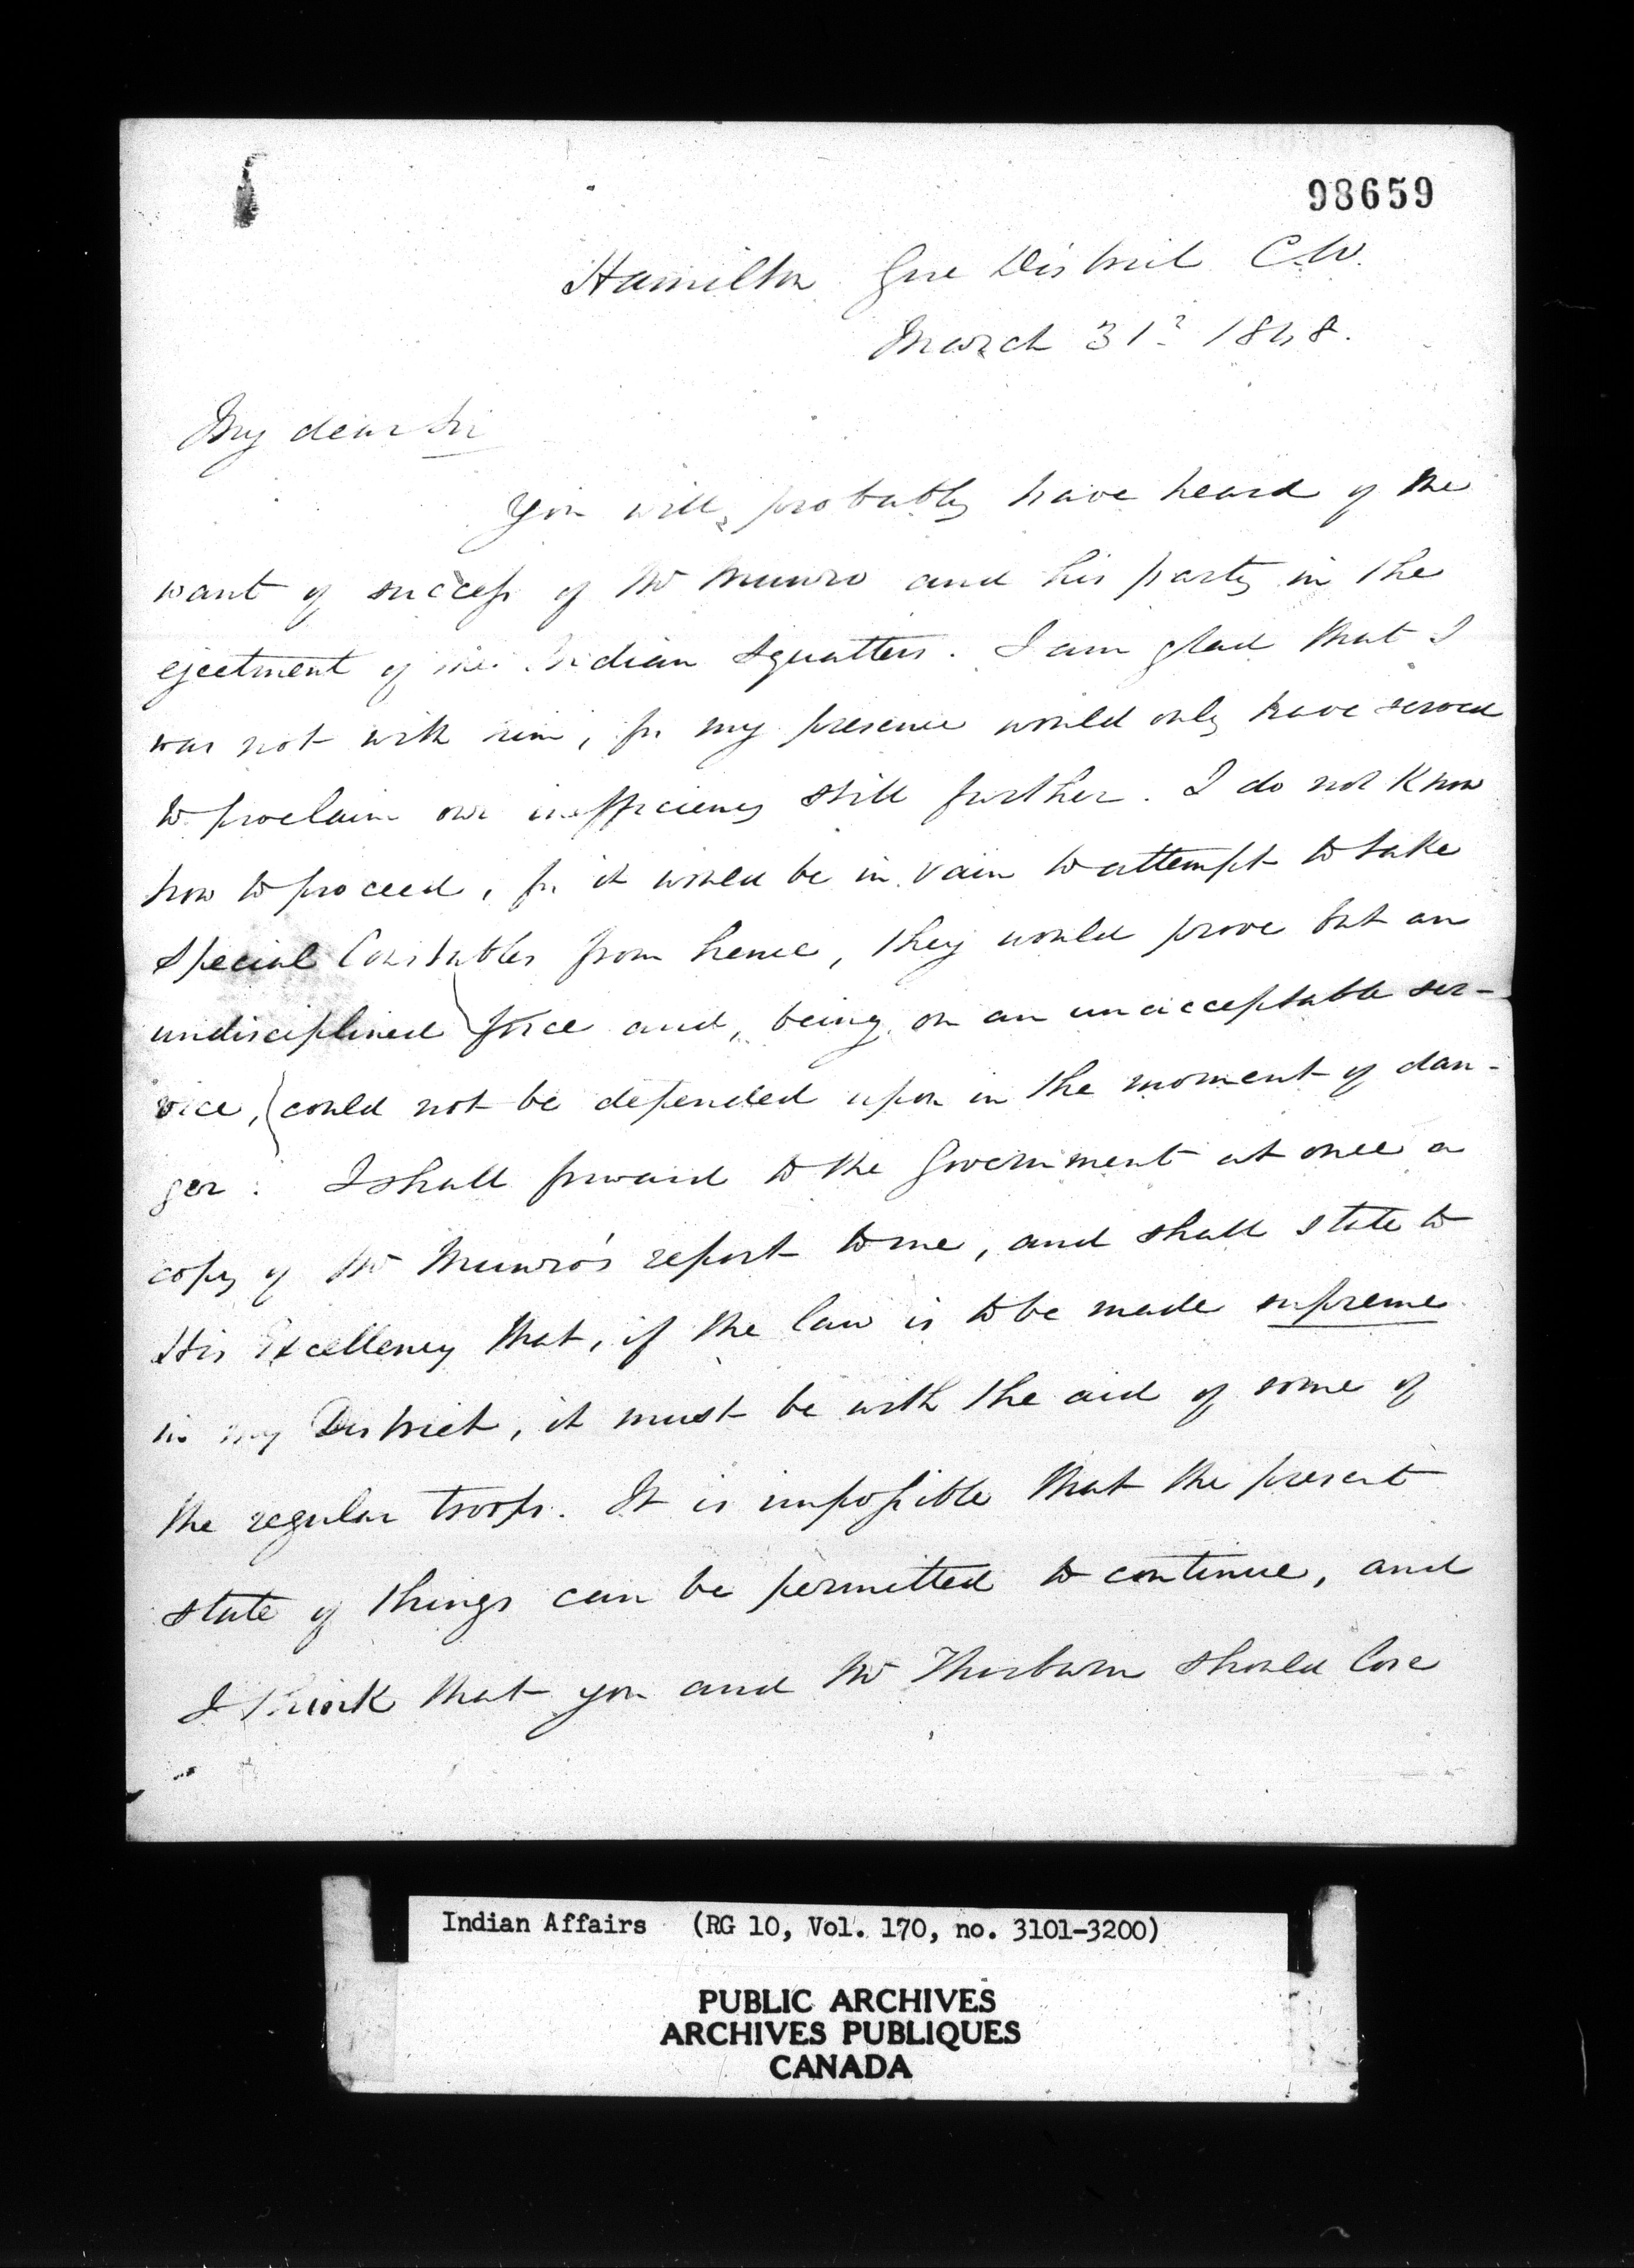 98659
Hamilton Gore District C.W.
March 31st 1848.
My dear Sir
You will, probably have heard of the
want of success of Mr Munro and his party in the
ejectment of the Indian Squatters. I am glad that I
was not with him, for my presence would only have served
to proclaim our inefficiency still further. I do not know
how to proceed, for it would be in vain to attempt to take
Special Constables from hence, they would prove but an
undisciplined force and, being on an unacceptable ser-
vice, could not be depended upon in the moment of dan-
ger. I shall forward to the Government at once a
copy of Mr Munro's report to me, and shall state to
His Excellency that, if the law is to be made supreme
in my District, it must be with the aid of some of
the regular troops. It is impossible that the present
state of things can be permitted to continue, and
I think that you and Mr Thorburn should lose
Indian Affairs (RG 10, Vol. 170, no. 3101-3200)
PUBLIC ARCHIVES
ARCHIVES PUBLIQUES
CANADA